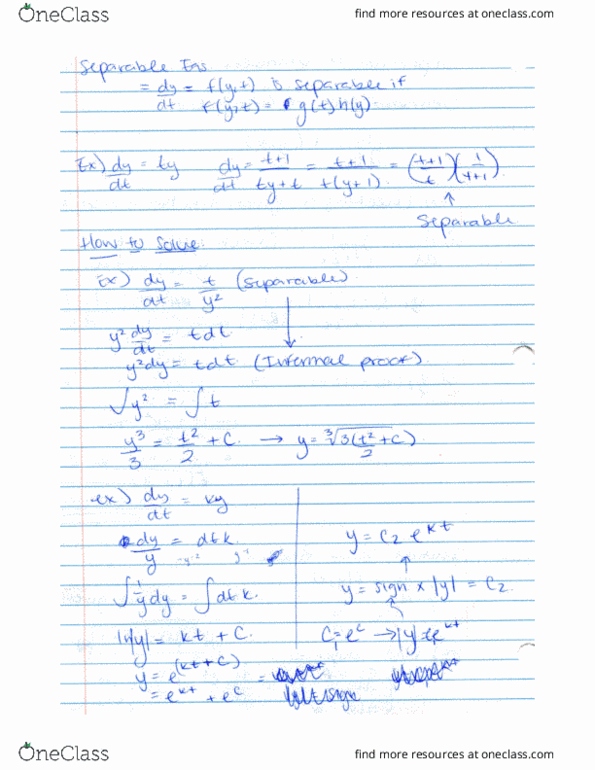 OneClass
find more resources at oneclass.com
Separable Eqs
= dy/dt = f(y,t) is separable if
f(y,t) = g(t)h(y)
Ex) dy/dt = ty dy/dt = t+1/ty+t = t+1/t(y+1) = (t+1/t)(1/y+1)
↑
Separable
How to Solve:
Ex) dy/dt = t/y² (Separable)
y² dy/dt = tdt
y²dy = tdt (Informal proof)
∫y² = ∫t
y³/3 = t²/2 + C → y = ³√3(t²/2 + C)
ex) dy/dt = ky
dy/y = dtk
y = C₂ e^kt
∫1/y dy = ∫dtk
y = sign x |y| = C₂
ln|y| = kt + C
C₁ = e^c → |y| = C₁e^kt
y = e^(kt+C)
= e^kt + e^c
OneClass
find more resources at oneclass.com